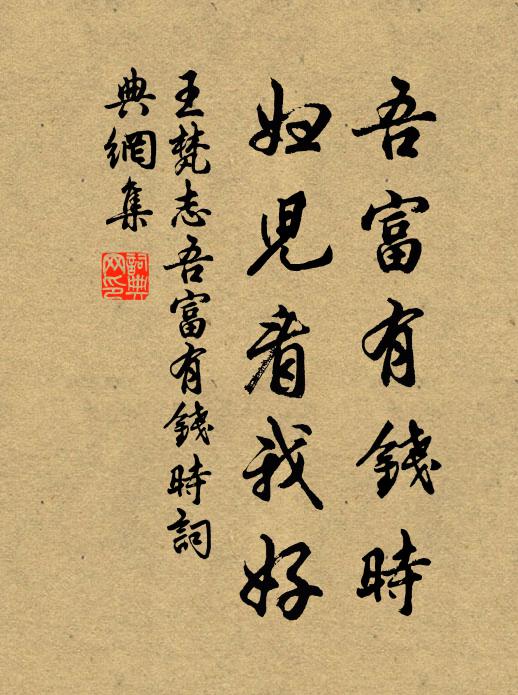 吾富有錢時
妇児看我好
王梵志吾富有錢時詞
典網集
詞典
网印